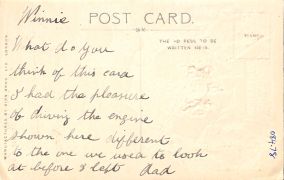 Winnie
POST CARD.
THE ADDRESS TO BE
WRITTEN HERE.
What do you
think of this card
I had the pleasure
of driving the engine
shown here different
to the one we used to look
at before I left Dad
084.78